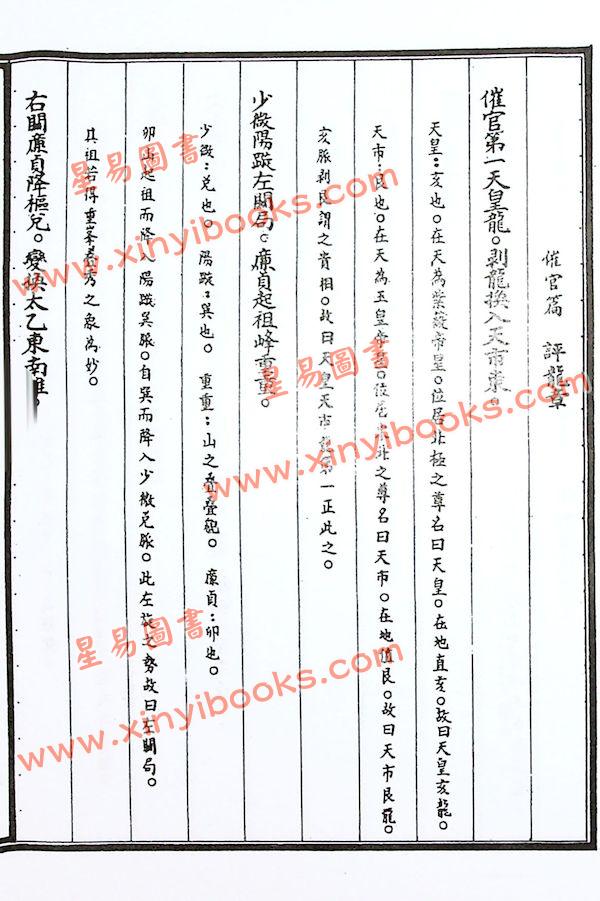 催官篇 評龍章
催官第一天皇龍。剥龍換入天市東。
天皇:亥也。在天為紫薇帝皇。位居北極之尊名曰天皇。在地直亥。故曰天皇亥龍。
天市:艮也。在天為玉皇帝 位居東北之尊名曰天市。在地值艮。故曰天市艮龍。
亥脈剥艮謂之貴相。故曰天皇天市 第一正此之。
少微陽璇左關局。廉貞起祖峰重重。
少微:兌也。陽璇:巽也。重重:山之叠叠貌。廉貞:卯也。
卯山起祖而降入陽璇巽脈。自巽而降入少微兌脈。此左旋之勢故曰左關局。
其祖若得重峯叠秀之象為妙。
右關廉貞降樞兌。變換太乙東南維。
星易圖書
www.xinyibooks.com
星易圖書
www.xinyibooks.com
星易圖書
www.xinyibooks.com